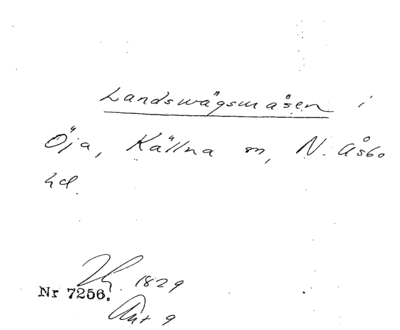 Landswägsmåsen i
Öja, Källna sn, N. Åsbo
hd.
1829
Nr 7256.
Akt 9